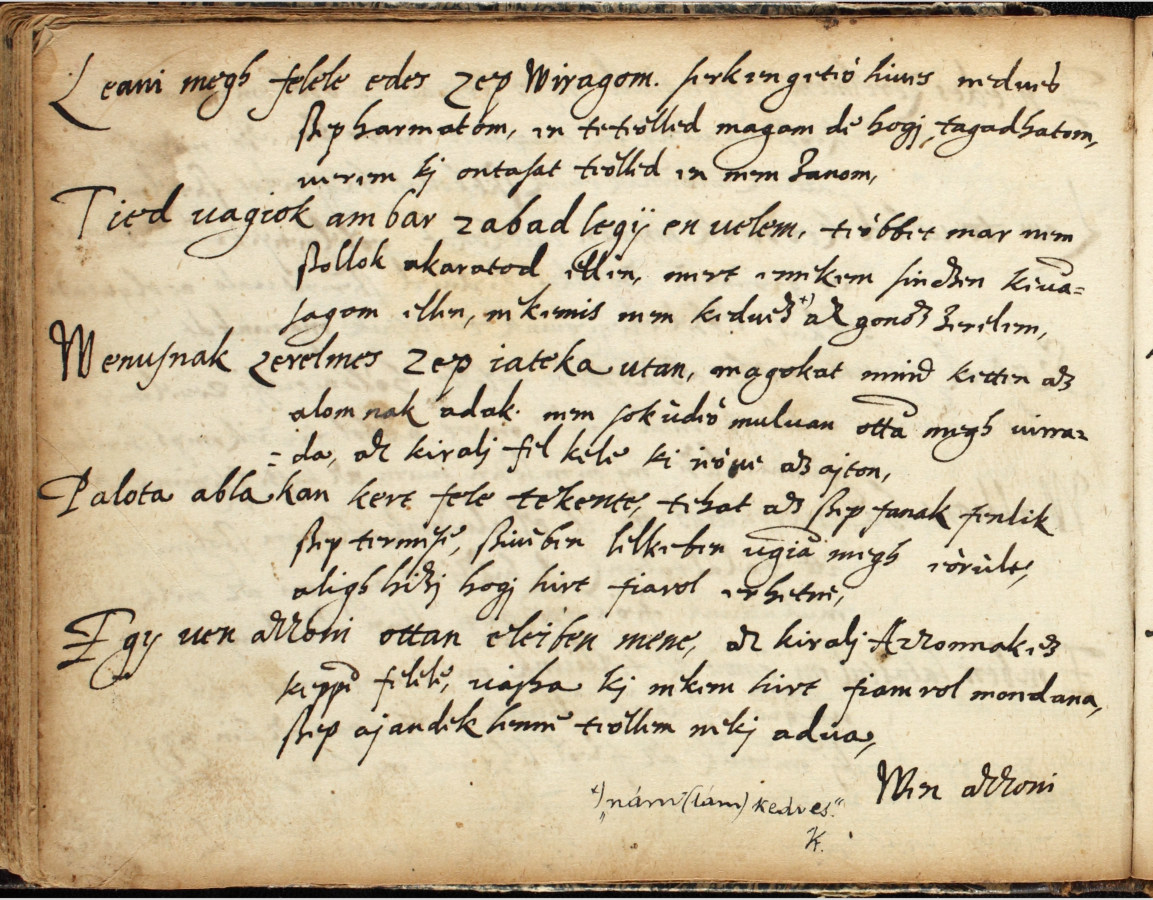 Leani megh felele edes zep Wiragom. serkengetiö hiues neduès
ßep harmatom, en teteölled magam de hogj tagadhatom,
uerem kj ontasat teölled en nem zanom,
Tied uagiok ambar zabad legÿ en uelem, teöbbet mar nem
ßollok akaratod ellen, mert enekem sinczen kiua=
sagom ellen, nekemis nem kedues +) az gonosz zerelem,
Wenusnak zerelmes zep iateka utan, magokat mind ketten az
alomnak adak. nem sok üdeö muluan otta megh uirra=
= da, az kiralj fel kele ki ieöue az ajton,
Palota ablakan kert fele tekente, tehat az ßep fanak fenlik
ßep termese, ßiueben lelkeben ugian megh eörüle,
aligh hiszj hogj hirt fiarol erhetne,
Egy uen azzoni ottan eleiben mene, az kiralj Azzonnak ez
keppe felele, uajha kj nekem hirt fiamrol mondana,
ßep ajandek lenne teöllem nekj adua,
Wen azzoni
+) „nám (lám) kedves."
K.